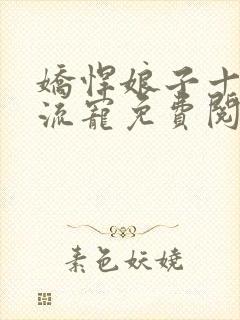 嬌悍娘子十
流寵免費閱
素色妖嬈